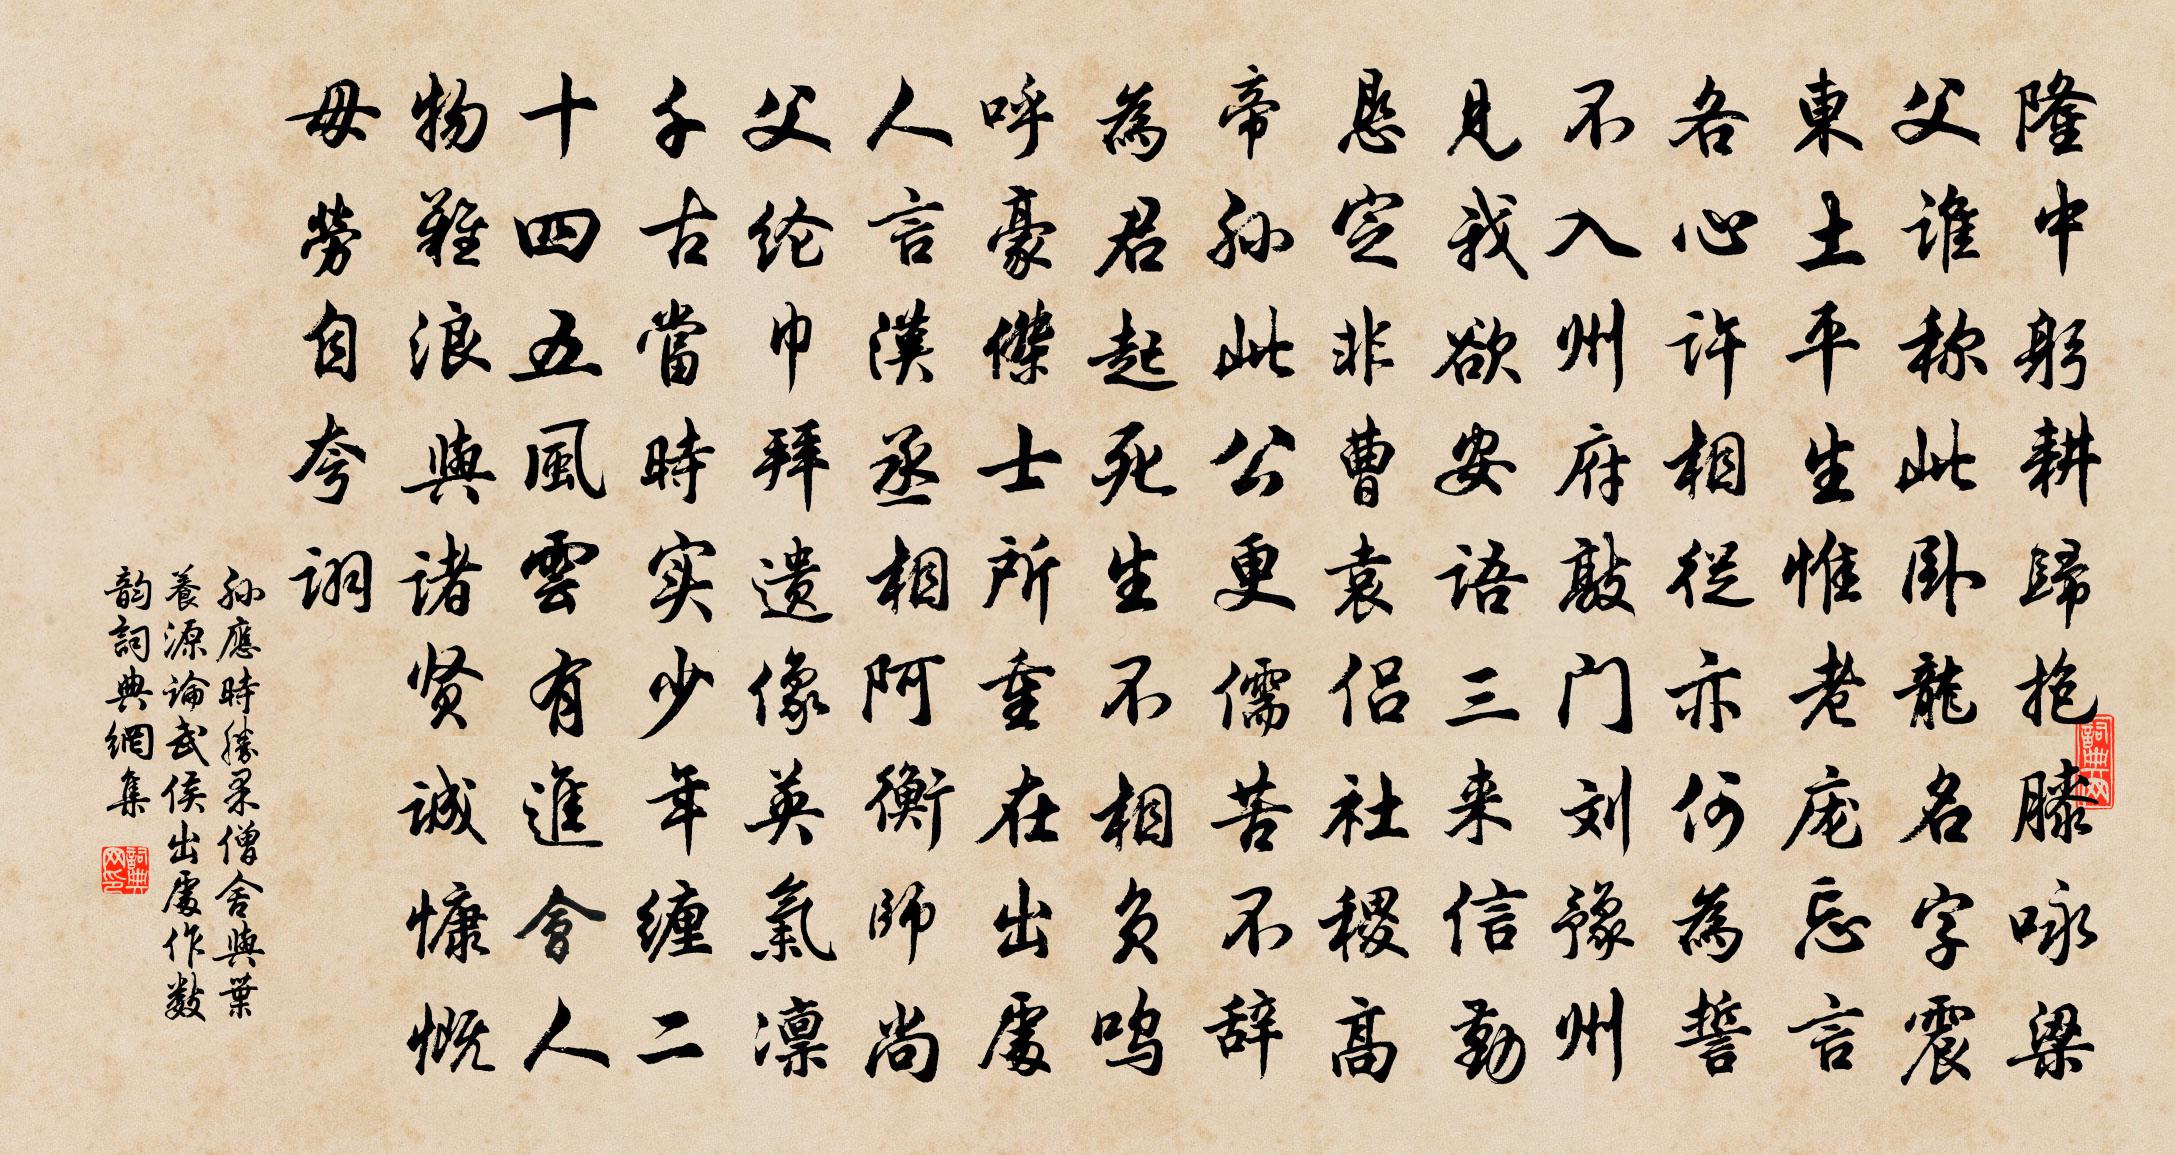 隆中躬耕歸抱膝咏梁
父谁称此卧龍名字震
東土平生惟老庞忘言
各心许相從亦何為誓
不入州府敲门刘豫州
見我欲安语三来信勤
恳定非曹袁侣社稷高
帝孙此公更儒苦不辞
為君起死生不相负鸣
呼豪傑士所重在出處
人言漢丞相阿衡師尚
父纶巾拜遗像英氣凛
千古當時实少年缠二
十四五風雲有進會人
物難浪與诸贤诚慷慨
毋勞自夸诩
孙應時勝果僧舍與葉
養源論武侯出處作数
韵詞典網集
詞典网
詞典网印